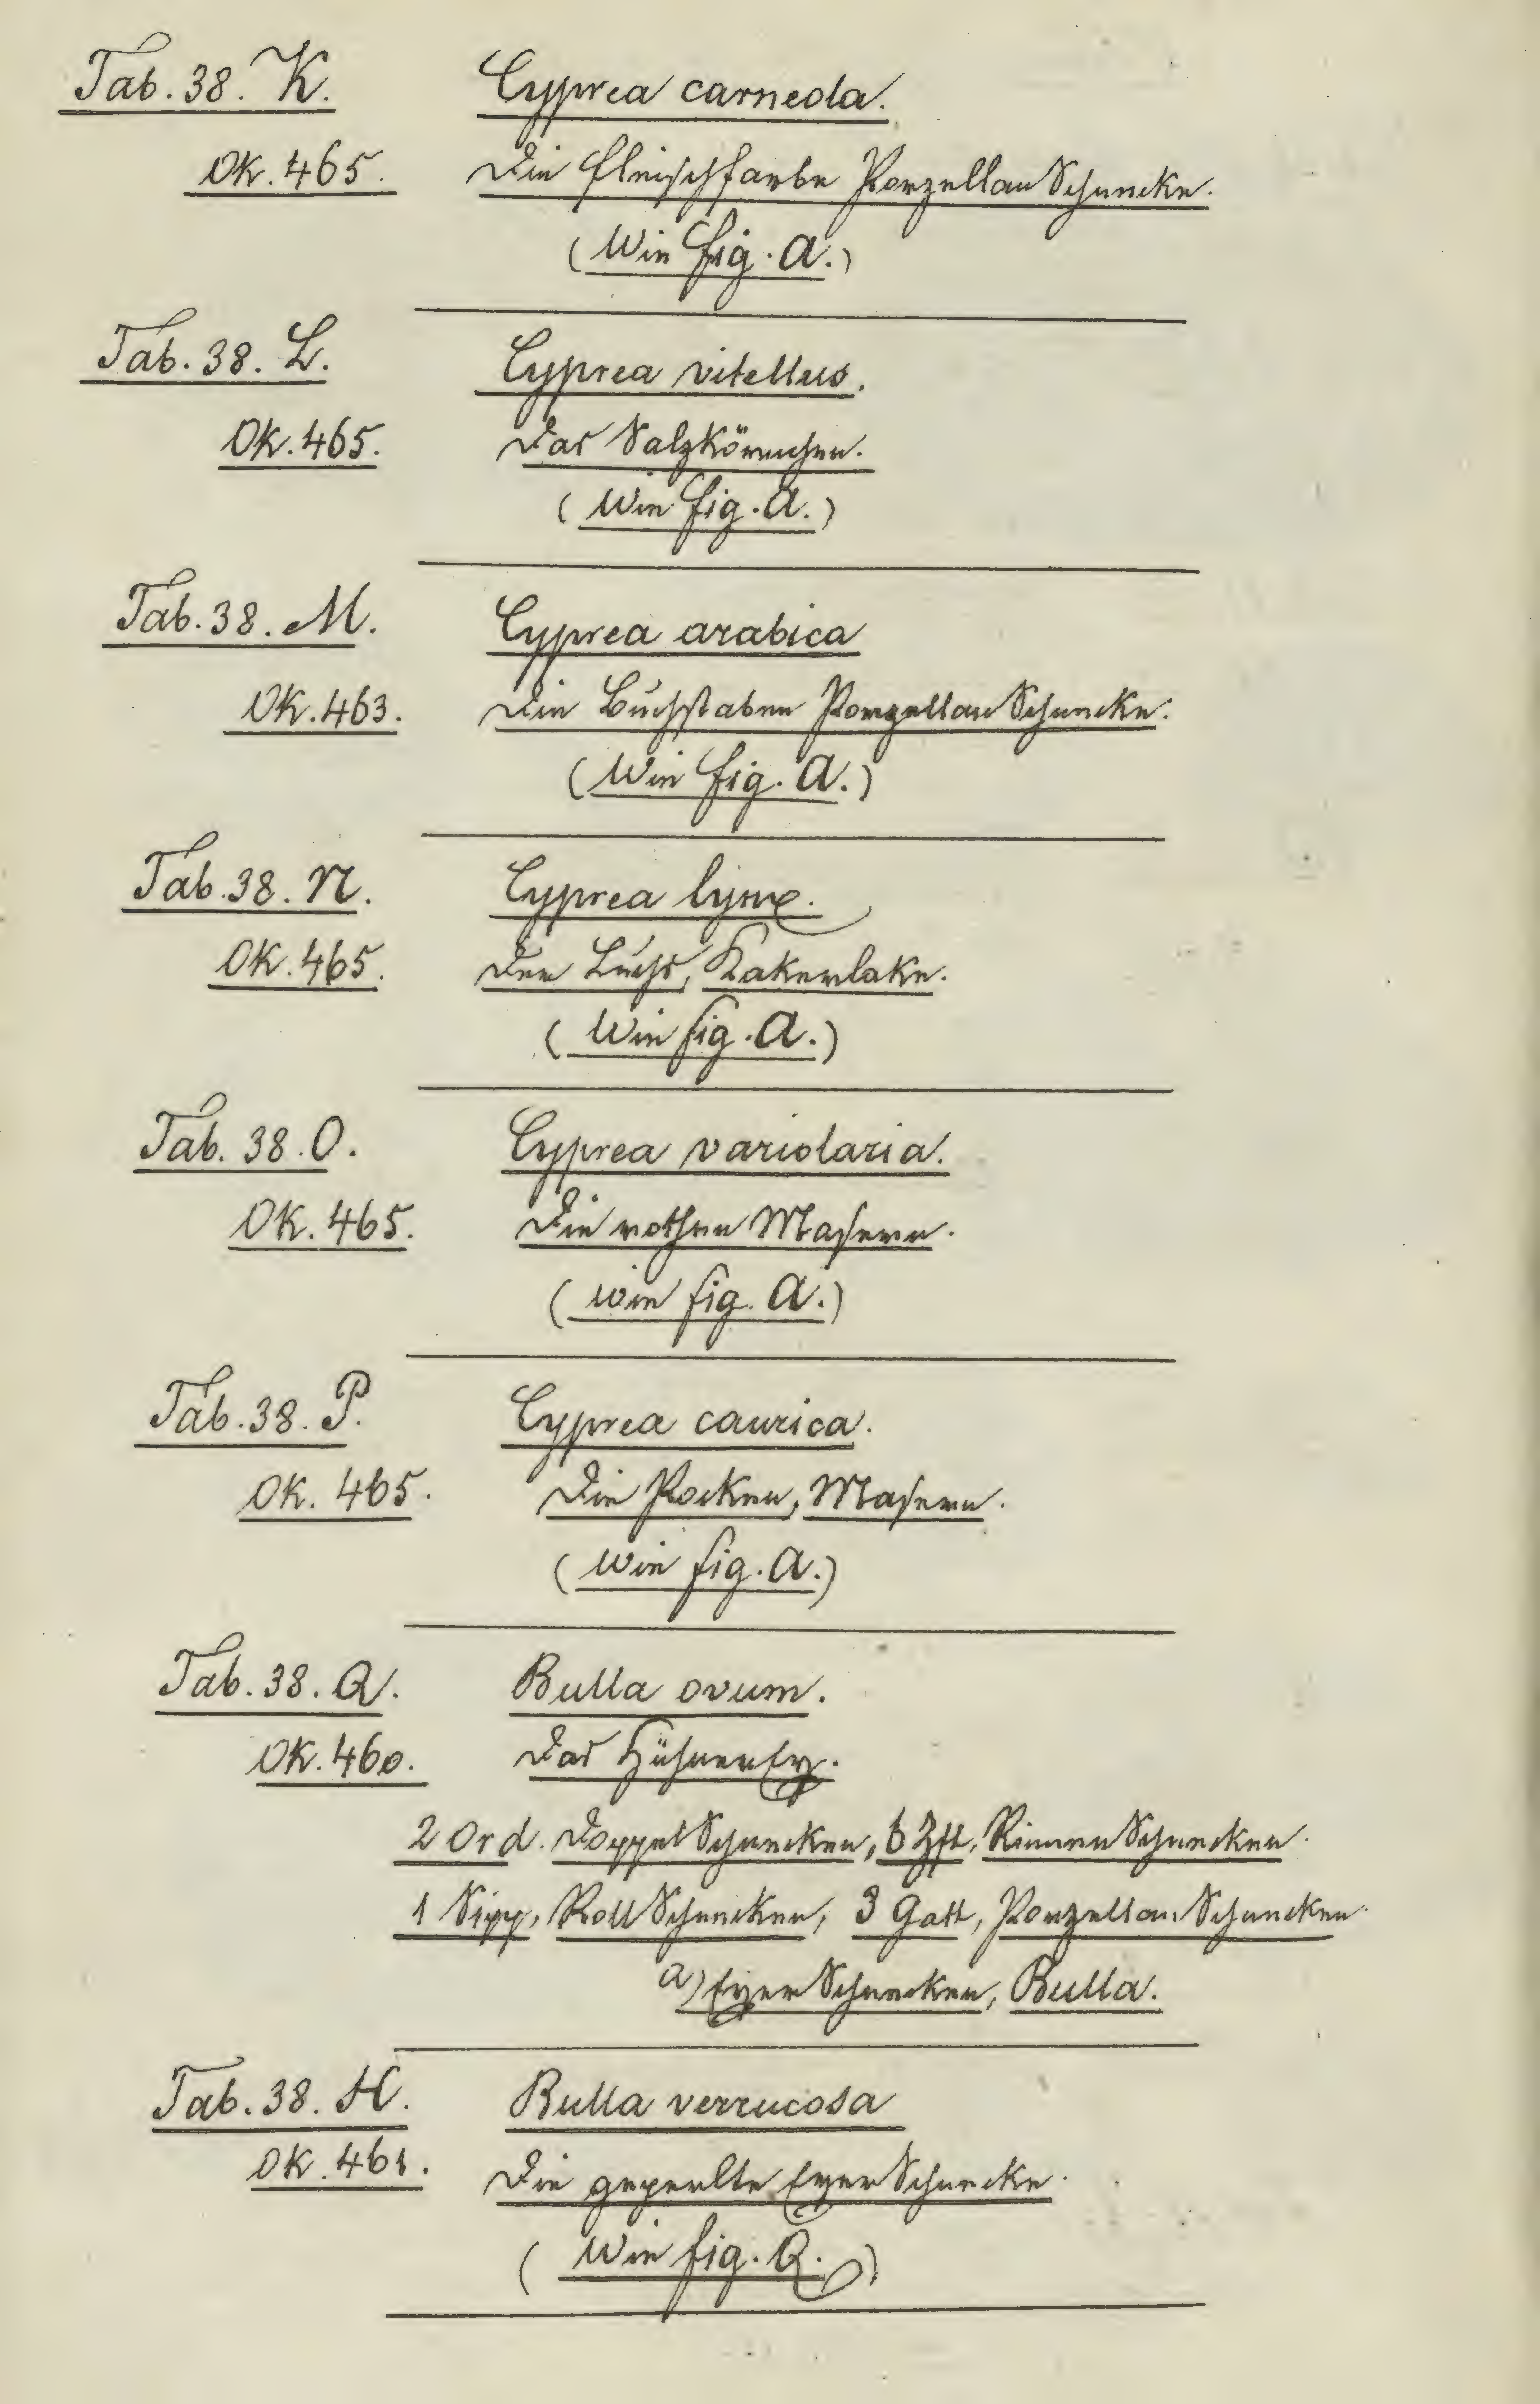 Tab. 38. K. Cyprea carneola.
Ok. 465. Die fleischfarbe Porzellan Schnecke.
(Wie fig. A.)
Tab. 38. L. Cyprea vitellus.
Ok. 465. Das Salzkörnchen.
(Wie fig. A.)
Tab. 38. M. Cyprea arabica
Ok. 463. Die Buchstaben Porzellan Schnecke.
(Wie fig. A.)
Tab. 38. N. Cyprea lynx.
Ok. 465. Der Luchs, Kakerlake.
(Wie fig. A.)
Tab. 38. O. Cyprea variolaria.
Ok. 465. Die rothen Masern.
(Wie fig. A.)
Tab. 38. P. Cyprea caurica.
Ok. 465. Die Pocken, Masern.
(Wie fig. A.)
Tab. 38. Q. Bulla ovum.
Ok. 460. Das HühnerEy.
2 Ord. Doppel Schnecken, 6 Zft, Rinnen Schnecken.
1 Sipp, Roll Schnecken, 3 Gatt, Porzellan Schnecken.
a) Eyer Schnecken, Bulla.
Tab. 38. H. Bulla verrucosa
Ok. 461. Die geperlte Eyer Schnecke.
(Wie fig. Q.)